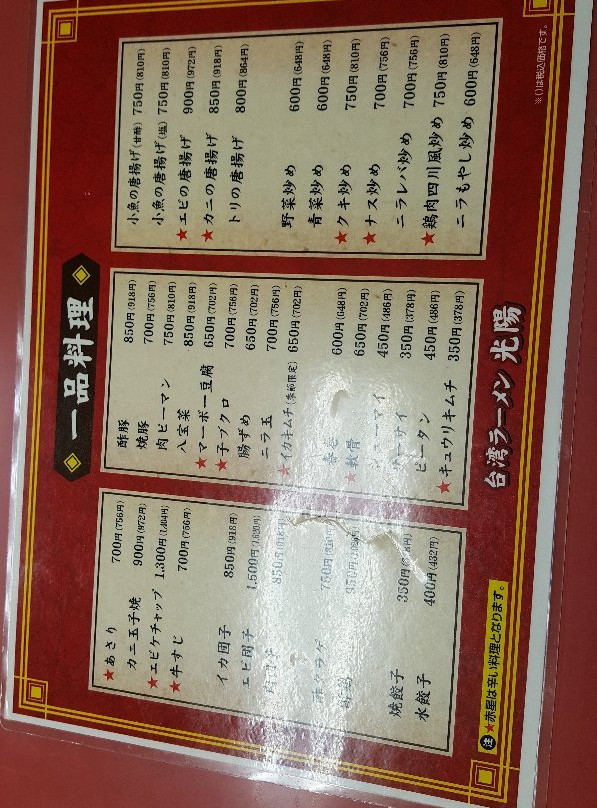 一品料理
★あさり 700円(756円)
カニ玉子焼 900円(972円)
★エビケチャップ 1,300円(1,404円)
★牛すじ 700円(756円)
イカ団子 850円(918円)
エビ団子 1,500円(1,620円)
850円
クラゲ 750円
350円
焼餃子 350円
水餃子 400円(432円)
酢豚 850円(918円)
焼豚 700円(756円)
肉ピーマン 750円(810円)
八宝菜 850円(918円)
★マーボー豆腐 650円(702円)
★子ブクロ 700円(756円)
腸ずめ 650円(702円)
ニラ玉 700円(756円)
★イカキムチ(季節限定) 650円(702円)
春巻 600円(648円)
★軟骨 650円(702円)
シューマイ 450円(486円)
ザーサイ 350円(378円)
ピータン 450円(486円)
★キュウリキムチ 350円(378円)
小魚の唐揚げ(甘酢) 750円(810円)
小魚の唐揚げ(塩) 750円(810円)
★エビの唐揚げ 900円(972円)
★カニの唐揚げ 850円(918円)
トリの唐揚げ 800円(864円)
野菜炒め 600円(648円)
青菜炒め 600円(648円)
★クキ炒め 750円(810円)
★ナス炒め 700円(756円)
ニラレバ炒め 700円(756円)
★鶏肉四川風炒め 750円(810円)
ニラもやし炒め 600円(648円)
注 ★赤星は辛い料理となります。
台湾ラーメン 光陽
※()は税込価格です。